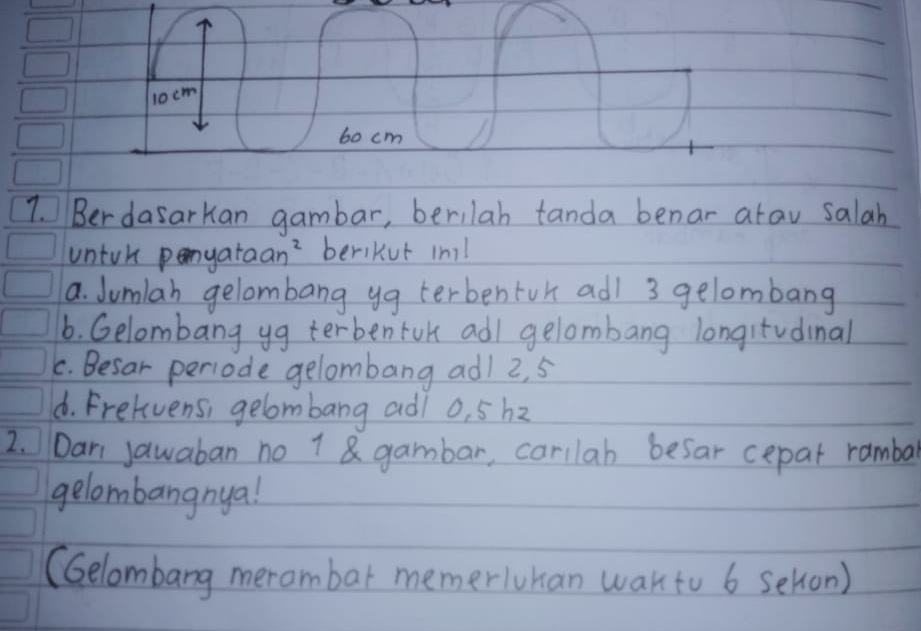 10 cm
60 cm
1. Berdasarkan gambar, berilah tanda benar atau salah
untuk penyataan² berikut ini!
a. Jumlah gelombang yg terbentuk adl 3 gelombang
b. Gelombang yg terbentuk adl gelombang longitudinal
c. Besar periode gelombang adl 2,5
d. Frekuensi gelombang adl 0,5 hz
2. Dari jawaban no 1 & gambar, carilah besar cepat rambat
gelombangnya!
(Gelombang merambat memerlukan waktu 6 sekon)